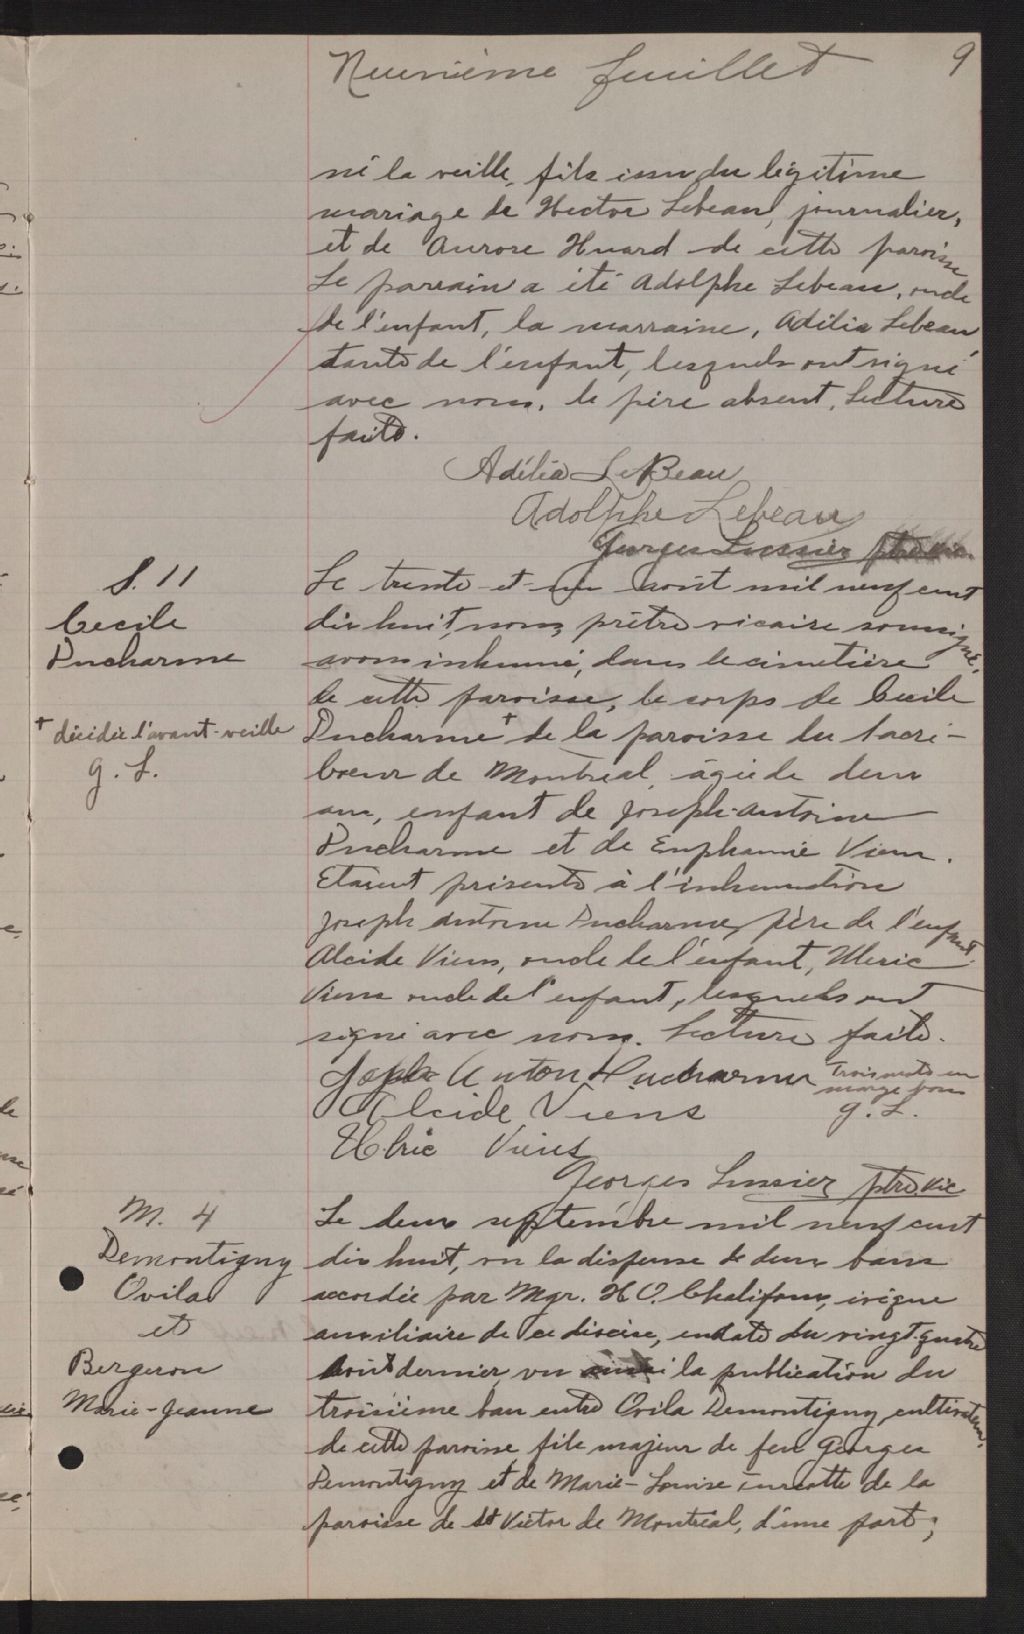 Neuvième feuillet
9
né la veille, fils issu du légitime
mariage de Hector Lebeau, journalier,
et de Aurore Huard de cette paroisse
Le parrain a été Adolphe Lebeau, oncle
de l'enfant, la marraine, Adélia Lebeau,
tante de l'enfant, lesquels ont signé
avec nous, le père absent. Lecture
faite.
Adélia LeBeau
Adolphe Lebeau
Georges Lussier ptre vic.
S. 11
Cecile
Ducharme
+ décédée l'avant-veille
G. L.
Le trente-et-un août mil neuf cent
dix huit, nous prêtre vicaire soussigné,
avons inhumé, dans le cimetière
de cette paroisse, le corps de Cecile
Ducharme + de la paroisse du Sacré-
Coeur de Montréal, âgée de deux
ans, enfant de Joseph-Antoine
Ducharme et de Euphémie Viens.
Etaient présents à l'inhumation
Joseph Antoine Ducharme, père de l'enfant,
Alcide Viens, oncle de l'enfant, Ulric
Viens oncle de l'enfant, lesquels ont
signé avec nous. Lecture faite.
Joseph Anton Ducharme
Trois mots en
marge bons
G. L.
Alcide Viens
Ulric Viens
Georges Lussier ptre vic
M. 4
Demontigny
Ovila
et
Bergeron
Marie-Jeanne
Le deux septembre mil neuf cent
dix huit, vu la dispense de deux bans
accordée par Mgr. H O. Chalifoux, évêque
auxiliaire de ce diocèse, en date du vingt-quatre
août dernier, vu aussi la publication du
troisième ban entre Ovila Demontigny, cultivateur,
de cette paroisse fils majeur de feu Georges
Demontigny et de Marie-Louise Turcotte de la
paroisse de St Victor de Montréal, d'une part;